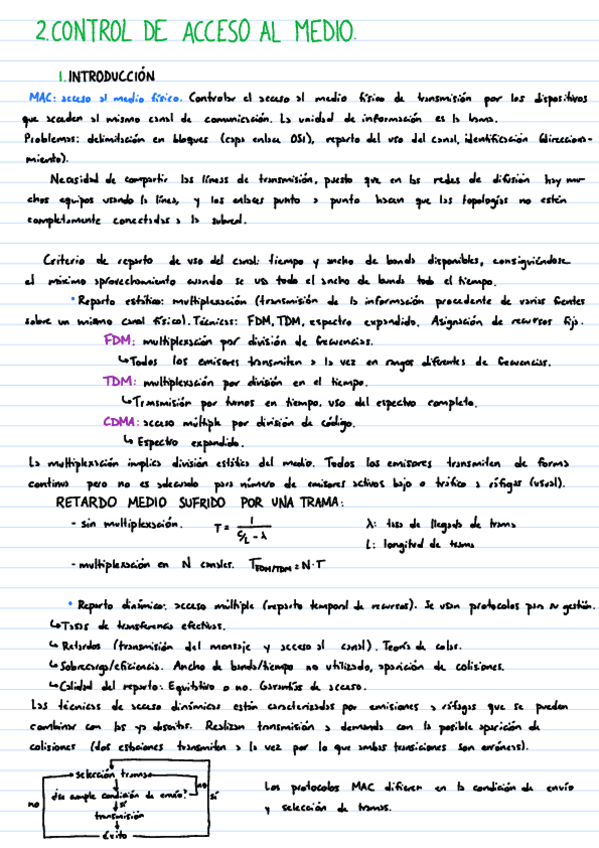 2.CONTROL DE ACCESO AL MEDIO.
1. INTRODUCCIÓN
MAC: acceso al medio físico. Controlar el acceso al medio físico de transmisión por los dispositivos
que acceden al mismo canal de comunicación. La unidad de información es la trama.
Problemas: delimitación en bloques (capa enlace OSI), reparto del uso del canal, identificación (direcciona-
miento).
Necesidad de compartir las líneas de transmisión, puesto que en las redes de difusión hay mu-
chos equipos usando la línea, y los enlaces punto a punto hacen que las topologías no estén
completamente conectadas a la subred.
Criterio de reparto de uso del canal: tiempo y ancho de banda disponibles, consiguiéndose
el máximo aprovechamiento cuando se usa todo el ancho de banda todo el tiempo.
• Reparto estático: multiplexación (transmisión de la información procedente de varias fuentes
sobre un mismo canal físico). Técnicas: FDM, TDM, espectro expandido. Asignación de recursos fija.
FDM: multiplexación por división de frecuencias.
↳Todos los emisores transmiten a la vez en rangos diferentes de frecuencias.
TDM: multiplexación por división en el tiempo.
↳Transmisión por turnos en tiempo, uso del espectro completo.
CDMA: acceso múltiple por división de código.
↳ Espectro expandido.
La multiplexación implica división estática del medio. Todos los emisores transmiten de forma
continua pero no es adecuado para número de emisores activos bajo o tráfico a ráfagas (usual).
RETARDO MEDIO SUFRIDO POR UNA TRAMA:
- sin multiplexación. T = 1 / (C/L - λ) λ: tasa de llegada de trama
L: longitud de trama
- multiplexación en N canales. T FDM/TDM = N·T
• Reparto dinámico: acceso múltiple (reparto temporal de recursos). Se usan protocolos para su gestión.
↳Tasas de transferencia efectivas.
↳ Retardos (transmisión del mensaje y acceso al canal). Teoría de colas.
↳Sobrecarga/eficiencia. Ancho de banda/tiempo no utilizado, aparición de colisiones.
↳Calidad del reparto: Equitativo o no. Garantías de acceso.
Las técnicas de acceso dinámicas están caracterizadas por emisiones a ráfagas que se pueden
combinar con las ya descritas. Realizan transmisión a demanda con la posible aparición de
colisiones (dos estaciones transmiten a la vez por lo que ambas transiciones son erróneas).
selección trama
no
¿se cumple condición de envío?
no
sí
sí
transmisión
Éxito
Los protocolos MAC difieren en la condición de envío
y selección de tramas.